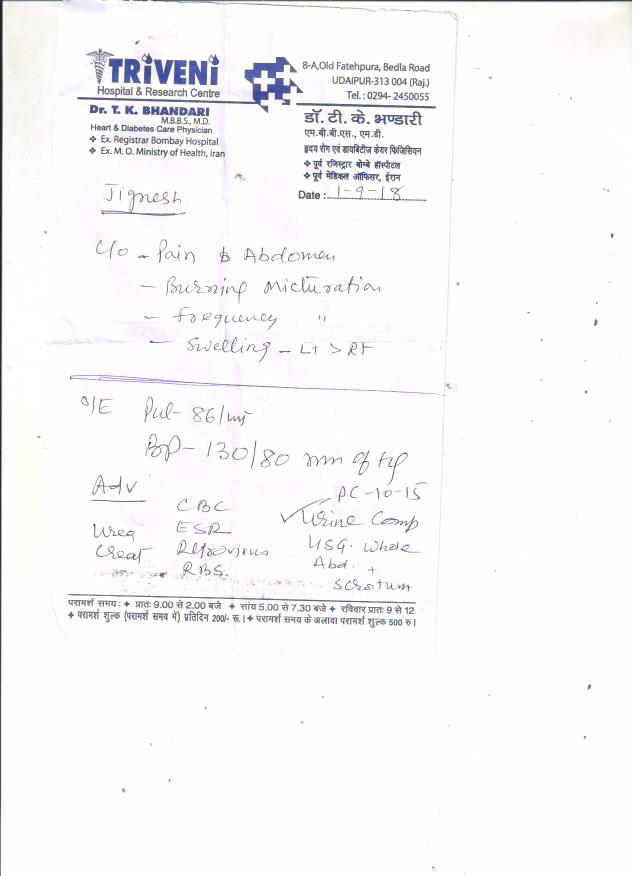 TRIVENI
Hospital & Research Centre
8-A,Old Fatehpura, Bedla Road
UDAIPUR-313 004 (Raj.)
Tel. : 0294- 2450055
Dr. T. K. BHANDARI
M.B.B.S., M.D.
Heart & Diabetes Care Physician
❖ Ex. Registrar Bombay Hospital
❖ Ex. M. O. Ministry of Health, Iran
डॉ. टी. के. भण्डारी
एम.बी.बी.एस., एम.डी.
हृदय रोग एवं डायबिटीज केयर फिजिसियन
❖ पूर्व रजिस्ट्रार बोम्बे हॉस्पीटल
❖ पूर्व मेडिकल ऑफिसर, ईरान
Date : 1-9-18
Jignesh
C/o - Pain Abdomen
- Burning Micturation
- Frequency "
- Swelling - Lt > Rt
O/E Pul- 86/
BP- 130/80 mm of Hg
Adv
CBC
Urea ESR
Creat Retrovirus
RBS.
PC-10-15
✓ Urine Comp
USG. Whole
Abd. +
Scrotum
परामर्श समय : ✦ प्रातः 9.00 से 2.00 बजे ✦ सांय 5.00 से 7.30 बजे ✦ रविवार प्रातः 9 से 12
✦ परामर्श शुल्क (परामर्श समय में) प्रतिदिन 200/- रू. । ✦ परामर्श समय के अलावा परामर्श शुल्क 500 रु ।